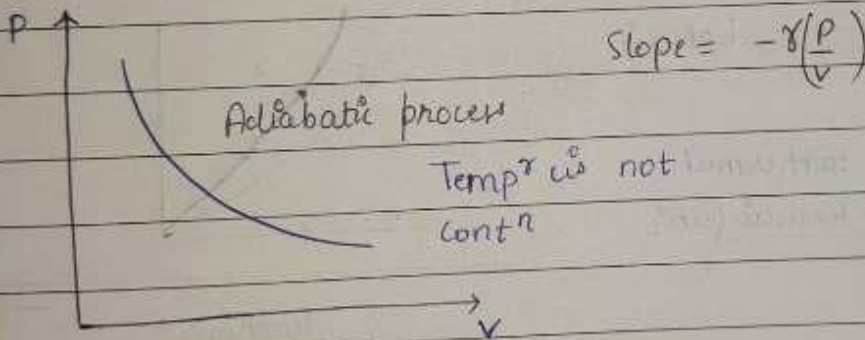 P
Slope = -γ(P/V)
Adiabatic process
Tempʳ is not
contⁿ
V